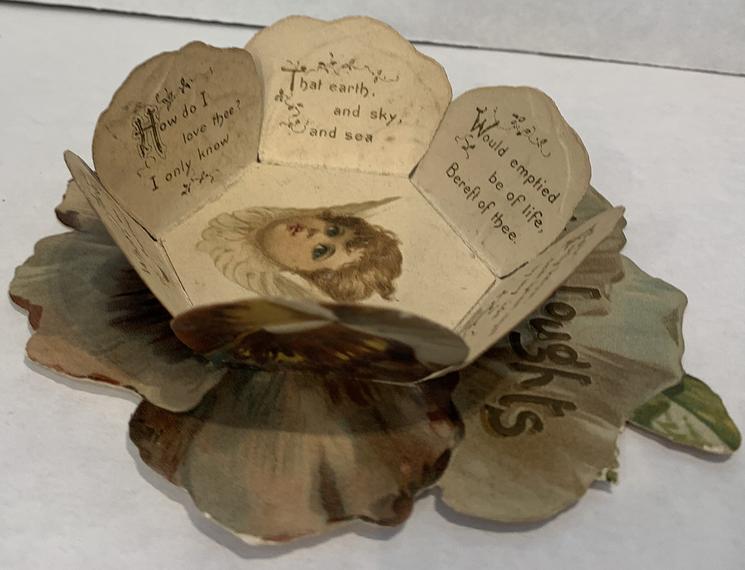 How do I
love thee?
I only know
That earth,
and sky,
and sea
Would emptied
be of life,
Bereft of thee.
oughts